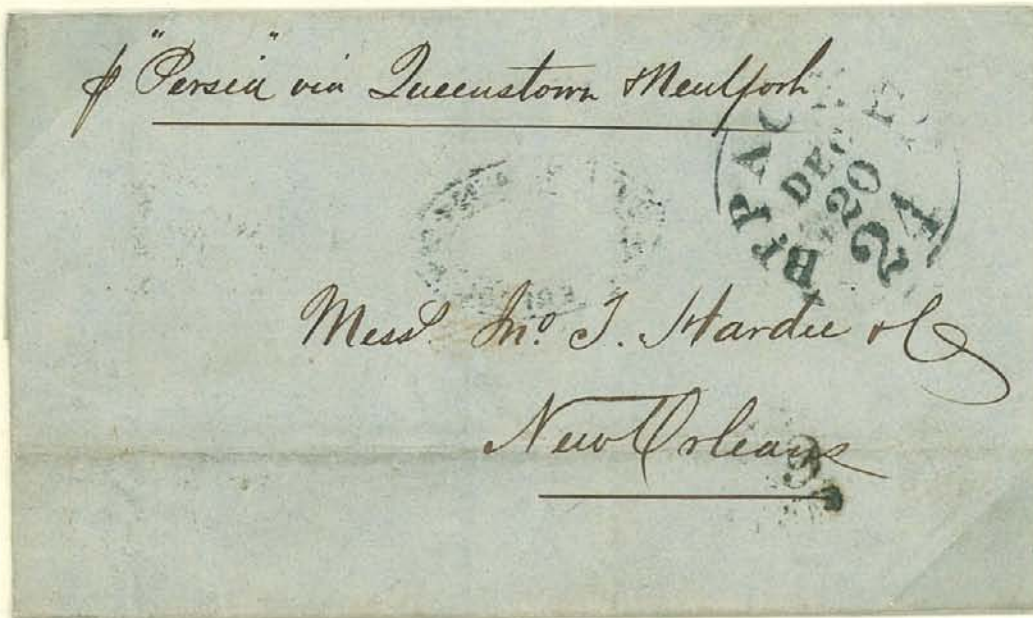 ⅌ "Persia" via Queenstown & New York
Br PACKET
DEC
20
24
Mess.rs Jno. T. Hardie & Co
New Orleans